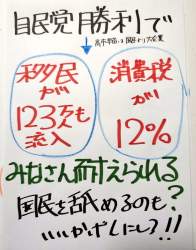 自民党勝利で
移民
が
123万人も
流入
消費税
が
12%
みなさん耐えられる?
国民を舐めるのも
いいかげんにしろ!!